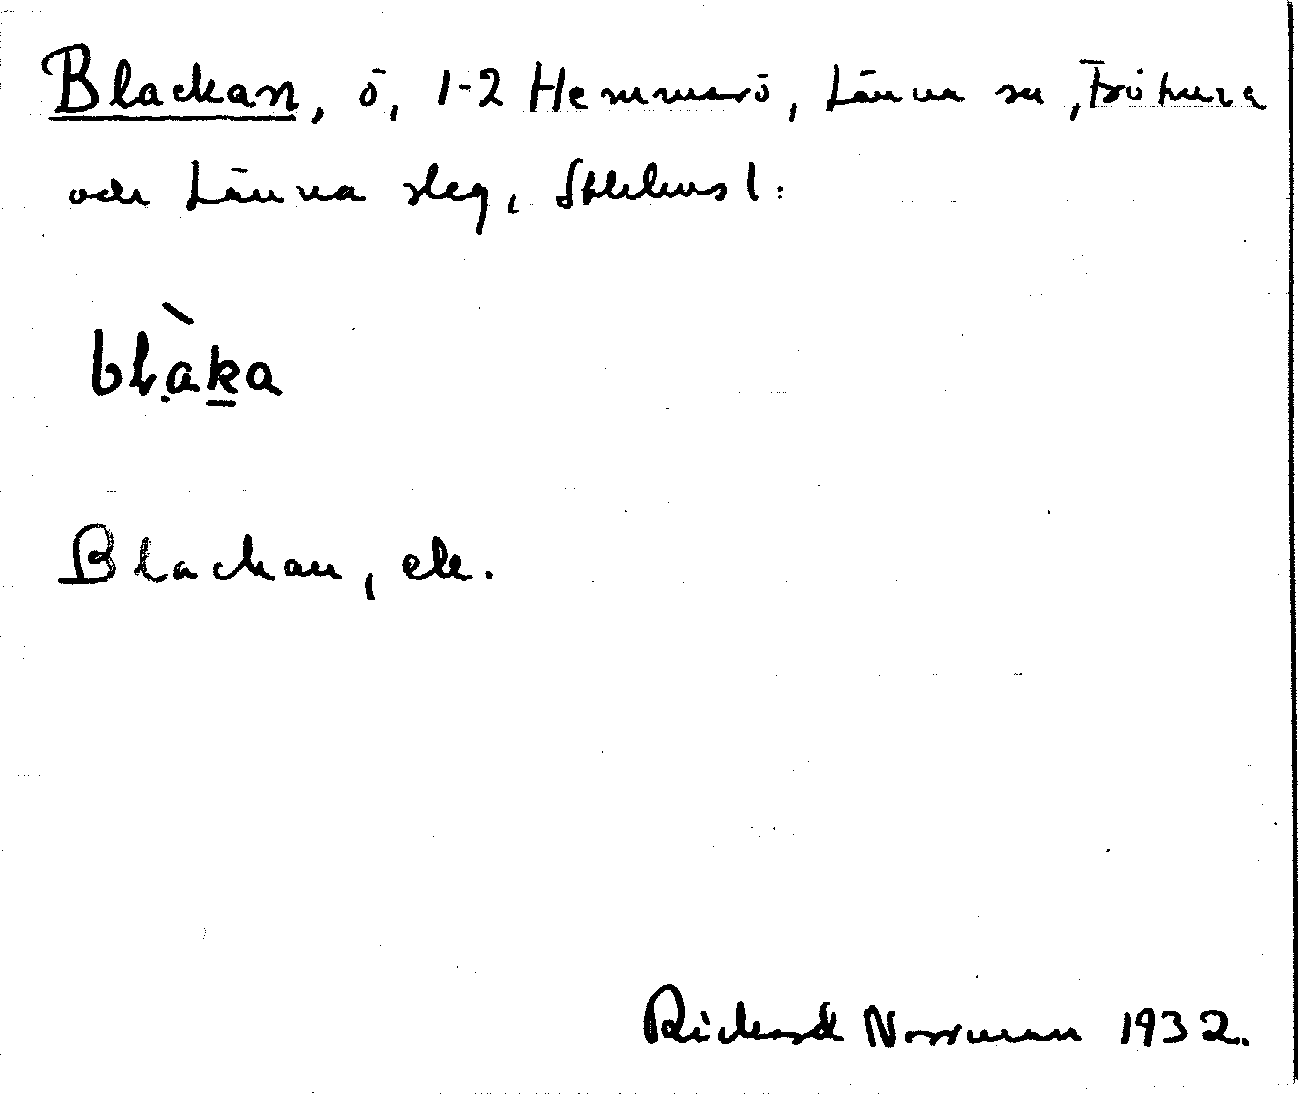 Blackan, ö, 1-2 Hemmarö, Länna sn, Frötuna
och Länna slag, Sthlms l:
blàka
Blackan, ek.
Rickard Norrman 1932.